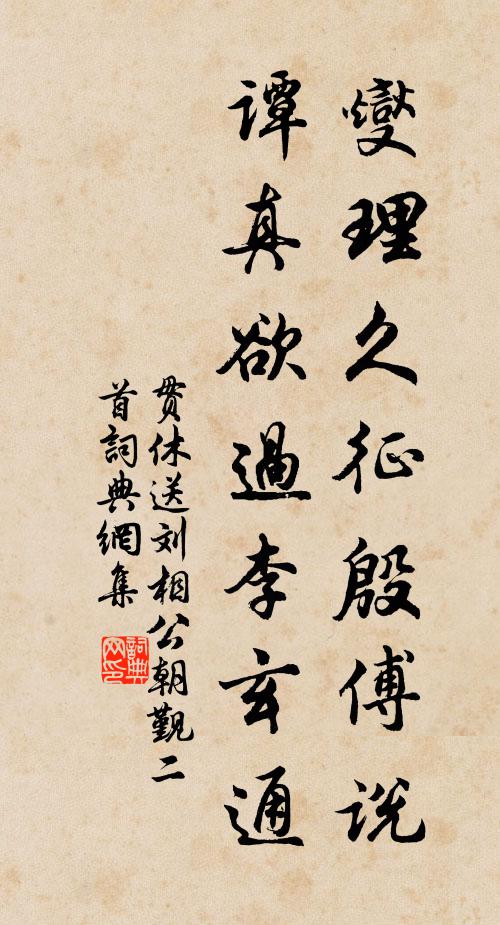 燮理久征殷傅说
谭真欲過李玄通
贯休送刘相公朝觐二
首詞典網集
詞典
网印